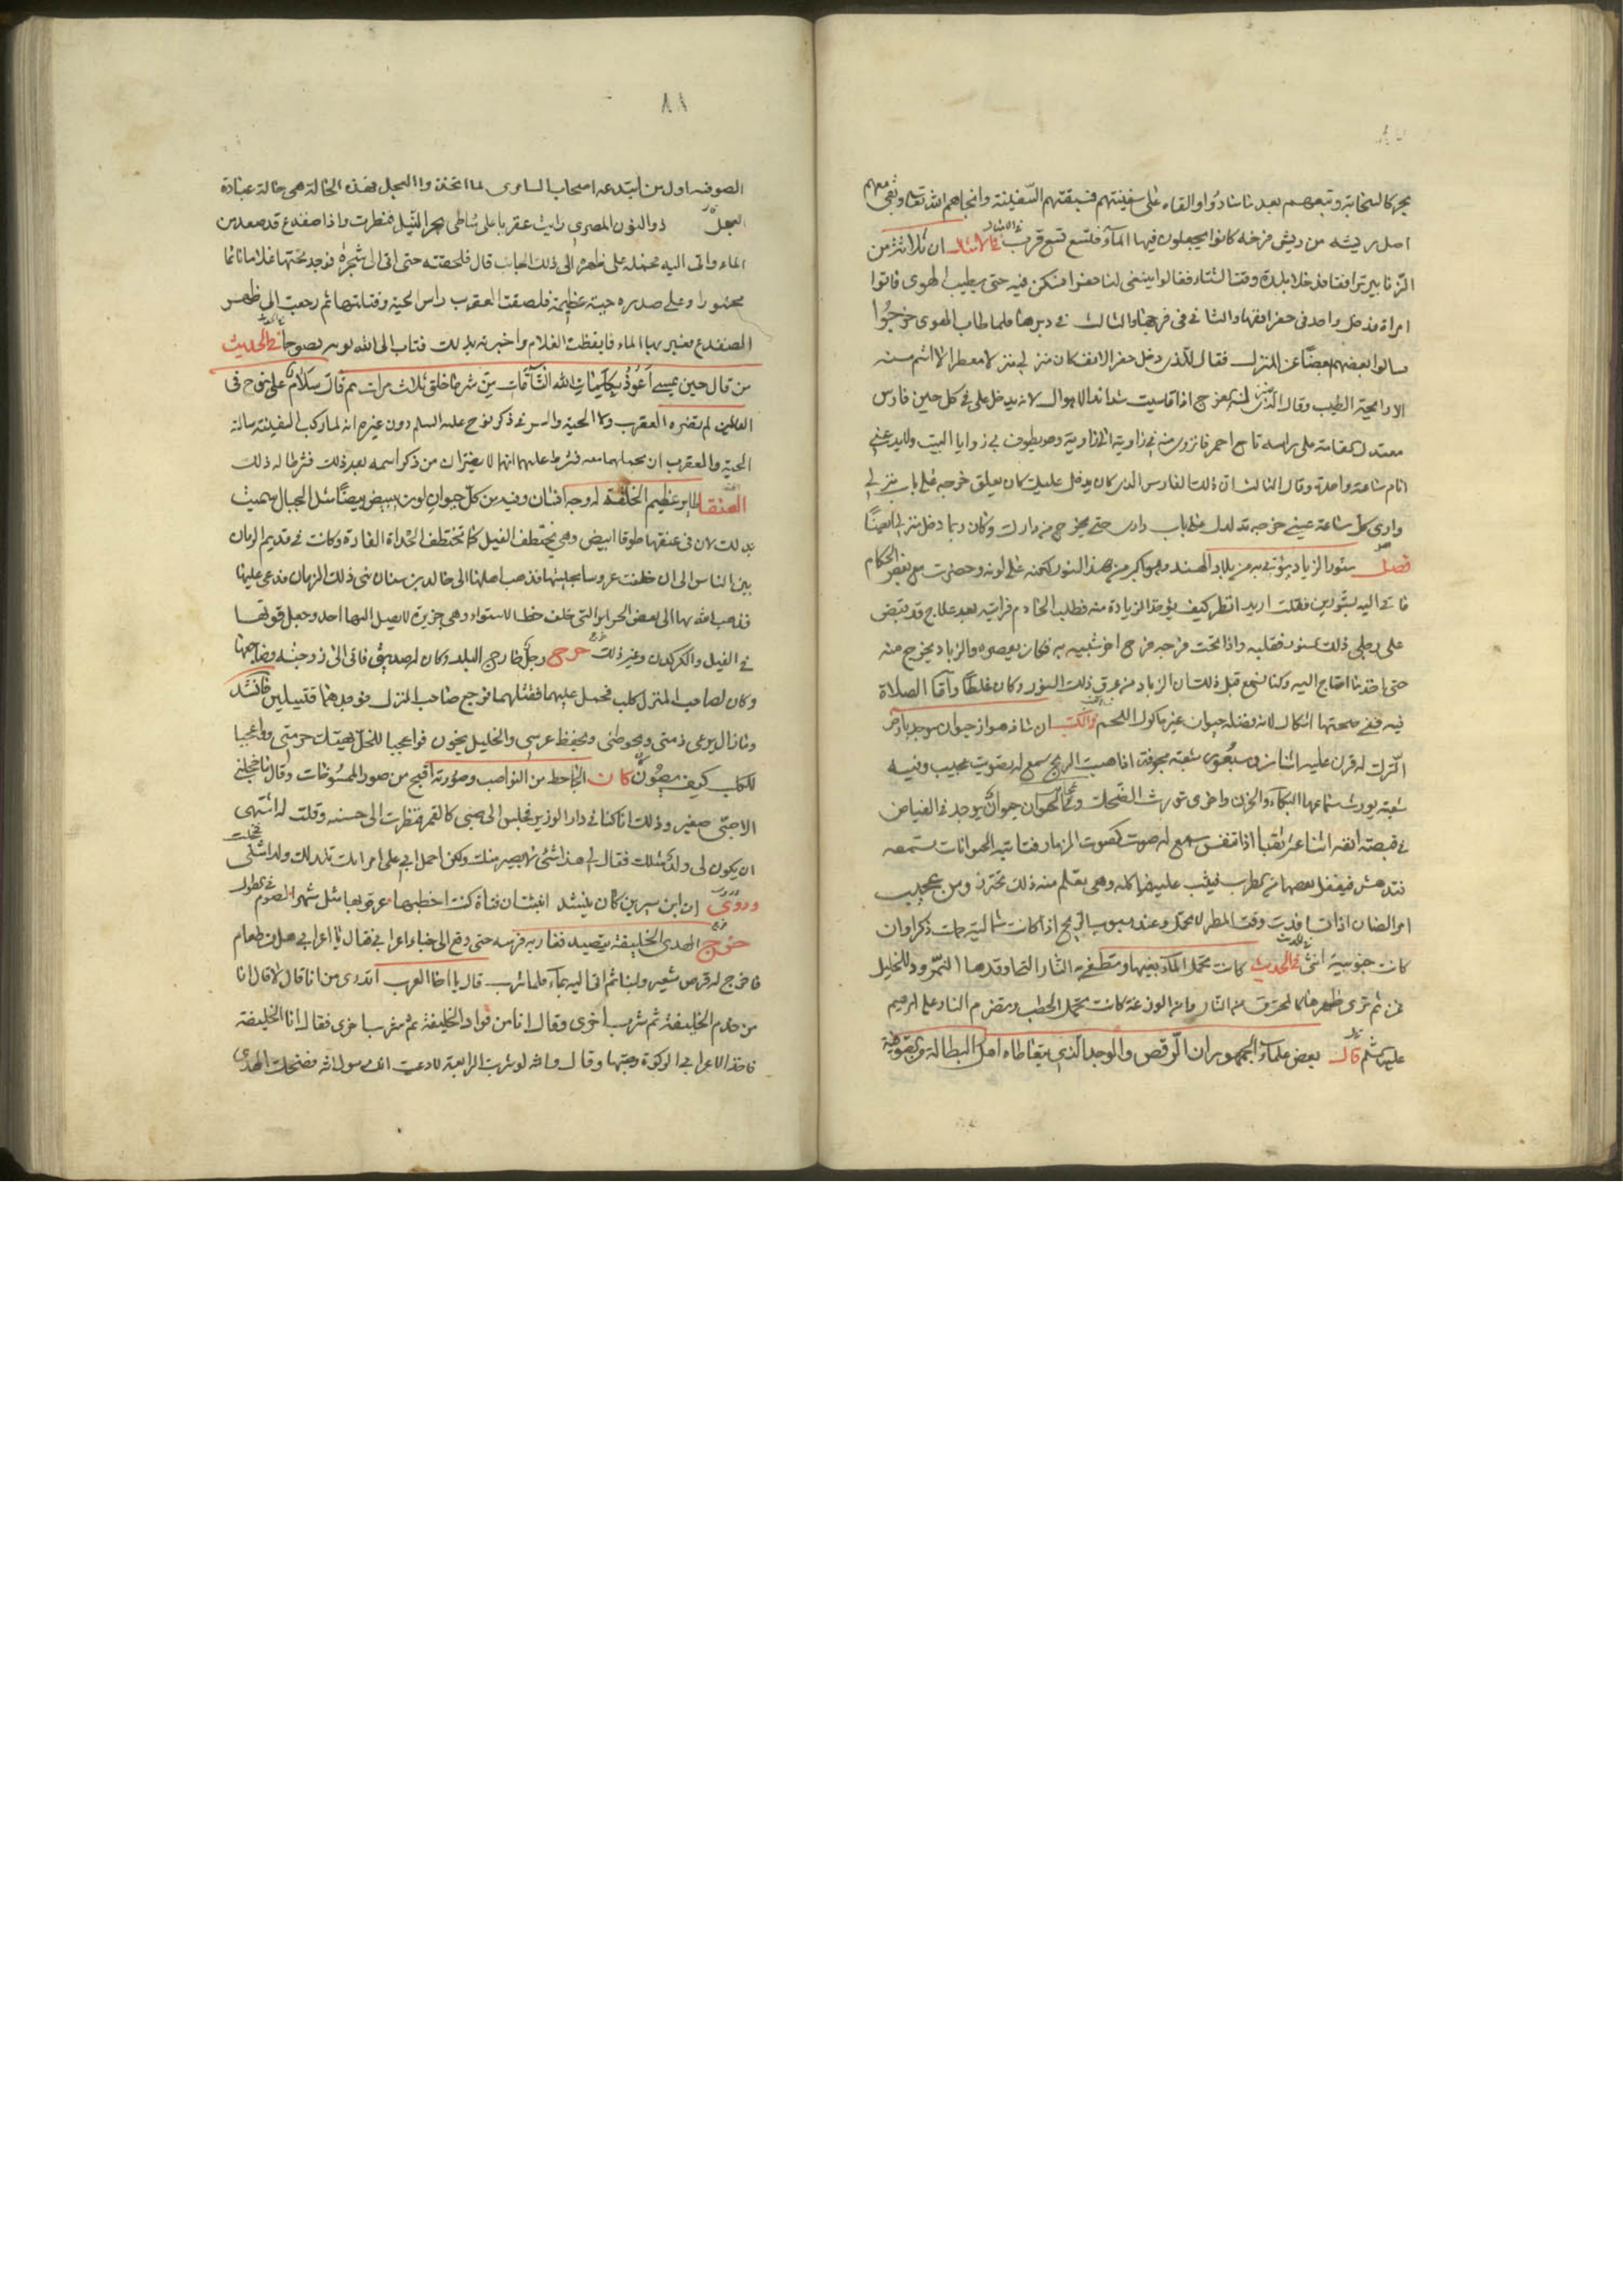 بحجر كالسحابة وتبعهم بعد ما ساروا والقاه على سفينتهم فسبقتهم السفينة وانجاهم الله تعالى وبقى معهم
اصل ريشه من ريش فرخه كانوا يجعلون فيها الماء فتسع تسع قرب في الامثال ان ثلاثة من
الزنابير ترافقا فدخلا بلدة وقت الشتاء فقالوا ينبغى لنا حفرا نسكن فيه حتى يطيب الهوى
امراة فدخل واحد فى والثانى فى والثالث فى فلما طاب الهوى خرجوا
سالوا بعضهم بعضا عن المنزل فقال الذى دخل كان منزلى منزلا معطرا لا اشم منه
الا رائحة الطيب وقال شدائد الاهوال لانه يدخل على فى كل حين فارس
معتدل القامة على راسه تاج احمر من زاوية الى زاوية وهو يطوف بى زوايا البيت
انام ساعة واحدة وقال الثالث ان ذلك الفارس الذى كان يدخل عليك كان يعلق خرجه على باب منزلى
وارى كل ساعة عينى خرجه على باب دارى حتى يخرج من دارك وكان ربما دخل منزلى ايضا
فصل سنور الزباد يؤتى به من بلاد الهند وهو اكبر من هذا السنور لكنه على لونه وحضرت مع بعض الحكام
فاتى اليه بسنورين فقلت اريد انظر كيف يؤخذ الزيادة منه فطلب الخادم فرايته بعد علاج قد قبض
على رجلى ذلك السنور فقلبه واذا تحت فرجه فرج اخر شبيه به فكان يعصره والزباد يخرج منه
حتى اخذ ما احتاج اليه وكنا نسمع قبل ذلك ان الزباد من عرق ذلك السنور وكان غلطا واما الصلاة
فيه ففى صحتها اشكال لانه فضلة حيوان غير ماكول اللحم والكتب ان شاذهوار حيوان يوجد بارض
الترك له قرن عليه اثنان وسبعون شعبة مجوفة اذا هبت الريح سمع له تصويت عجيب وفيه
شعبة يورث سماعها البكاء والحزن واخرى تورث الضحك وحيوان يوجد فى الغياض
فى قصبة انفه اثنا عشر ثقبا اذا تنفس سمع له صوت كصوت المزمار فتاتيه الحيوانات تستمعه
فتدهش فيغفل بعضها من الطرب فيثب عليه فياكله وهى تعلم منه ذلك تحترز ومن عجيب
امر الضان اذا وقت المطر لا تحمل وعند هبوب الريح اذا كانت شمالية حملت ذكرا وان
كانت جنوبية انثى فى الحديث كانت تحمل الماء بفيها وتطفى به النار التى اوقدها النمرود للخليل
فمن ثم ترى ظهرها كالمحترق من النار وان الوزغة كانت تحمل الحطب وتضرم النار على ابرهيم
عليه السلم قال بعض علماء الجمهور ان الرقص والوجد الذى يتعاطاه اهل البطالة
٨٨
الصوفيه اول من ابتدعه اصحاب السامرى لما اتخذوا العجل فهذه الحالة هى حالة عبادة
العجل ذو النون المصرى رايت عقربا على شاطى بحر النيل فنظرت واذا ضفدع قد صعد من
الماء واتى اليه فحمله على ظهره الى ذلك الجانب قال فلحقته حتى اتى الى شجرة فوجد تحتها غلاما نائما
مخمورا وعلى صدره حية عظيمة فلصقت العقرب راس الحية وقتلتها ثم رجعت الى ظهر
الضفدع فعبر بها الماء فايقظت الغلام واخبرته بذلك فتاب الى الله توبة نصوحا فى الحديث
من قال حين يمسى اعوذ بكلمات الله التامات من شر ما خلق ثلاث مرات ثم قال سلام على نوح فى
العالمين لم تضره العقرب ولا الحية والسر فى ذكر نوح عليه السلم دون غيره انه لما ركب السفينة سالته
الحية والعقرب ان يحملهما معه فشرط عليهما انهما لا يضران من ذكر اسمه بعد ذلك فشرطا له ذلك
العنقا طاير عظيم الخلقة له وجه انسان وفيه من كل حيوان لون تبيض بيضا مثل الجبال سميت
بذلك لان فى عنقها طوقا ابيض وهى تختطف الفيل كما تختطف الحداة الفارة وكانت فى قديم الزمان
بين الناس الى ان خطفت عروسا بحليتها فذهب اهلها الى خالد بن سنان نبى ذلك الزمان فدعى عليها
فذهب الله بها الى بعض الجزاير التى خلف خط الاستواء وهى جزيرة لا يصل اليها احد وجعل قوتها
فى الفيل والكركدن وغير ذلك خرج رجل خارج البلد وكان له صديق فاتى الى زوجته فضاجعها
وكان لصاحب المنزل كلب فحمل عليهما فقتلهما فرجع صاحب المنزل فوجدهما قتيلين فانشد
وما زال يرعى ذمتى ويحوطنى ويحفظ عرسى والخليل يخون فواعجبا للخل يهتك حرمتى وواعجبا
للكلب كيف يصون كان الجاحظ من النواصب وصورته اقبح من صور المسوخات وقال ما اخجلنى
الا صبى صغير وذلك انا كنا فى دار الوزير فجلس الى صبى كالقمر فنظرت الى حسنه وقلت له اشتهى
ان يكون لى ولد مثلك فقال لى هذا شئ لا يصير منك ولكن احمل ابى على امراتك تلد لك ولدا مثلى فخجلت
وروى ان ابن سيرين كان ينشد انبئت ان فتاة كنت اخطبها عرقوبها مثل شهر الصوم فى الطول
خرج المهدى الخليفة يتصيد فغار به فرسه حتى وقع الى خباء اعرابى فقال يا اعرابى هل من طعام
فاخرج له قرص شعير ولبنا ثم اتى اليه بماء فلما شرب قال يا اخا العرب اتدرى من انا قال لا قال انا
من خدم الخليفة ثم شرب اخرى وقال انا من قواد الخليفة ثم شرب اخرى فقال انا الخليفة
فاخذ الاعرابى الركوة وقال والله لو شربت الرابعة لادعيت انك رسول الله فضحك المهدى